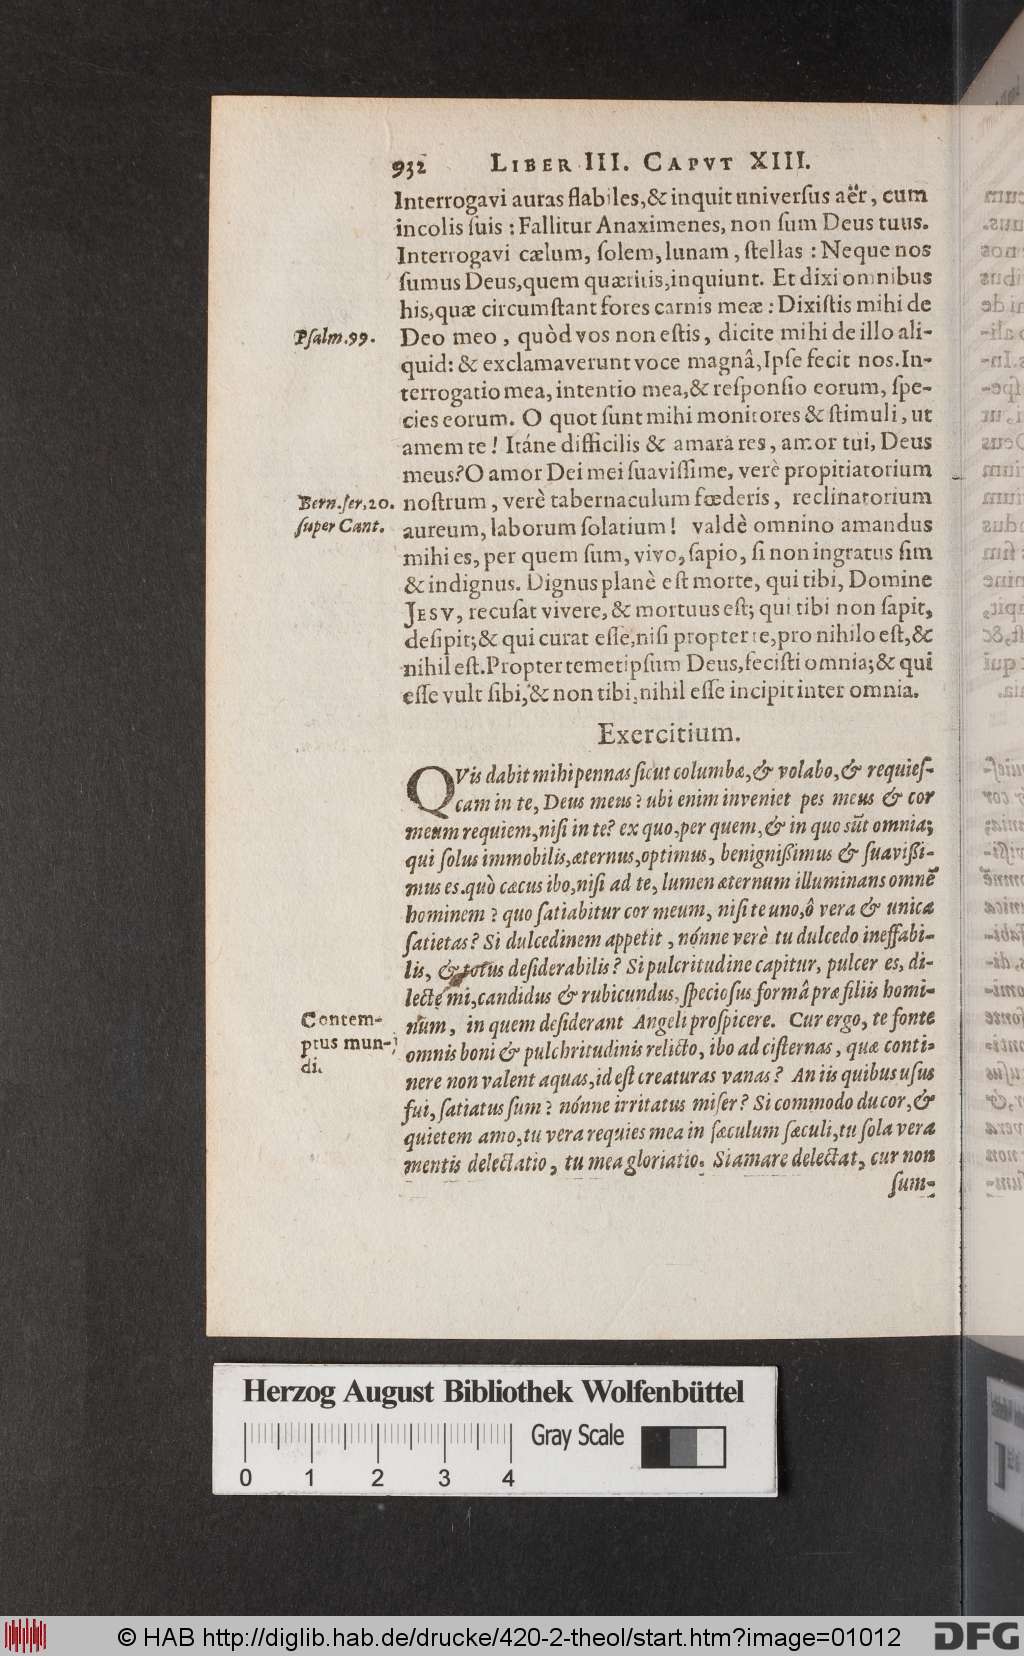 932 LIBER III. CAPVT XIII.
Interrogavi auras flabiles,& inquit univerſus aër, cum
incolis ſuis : Fallitur Anaximenes, non ſum Deus tuus.
Interrogavi cælum, ſolem, lunam, ſtellas : Neque nos
ſumus Deus,quem quæritis,inquiunt. Et dixi omnibus
his,quæ circumſtant fores carnis meæ : Dixiſtis mihi de
Pſalm.99. Deo meo, quòd vos non eſtis, dicite mihi de illo ali-
quid: & exclamaverunt voce magnâ,Ipſe fecit nos.In-
terrogatio mea, intentio mea,& reſponſio eorum, ſpe-
cies eorum. O quot ſunt mihi monitores & ſtimuli, ut
amem te ! Itáne difficilis & amara res, amor tui, Deus
meus?O amor Dei mei ſuaviſſime, verè propitiatorium
Bern.ſer.20. noſtrum, verè tabernaculum fœderis, reclinatorium
ſuper Cant. aureum, laborum ſolatium ! valdè omnino amandus
mihi es, per quem ſum, vivo, ſapio, ſi non ingratus ſim
& indignus. Dignus planè eſt morte, qui tibi, Domine
JESV, recuſat vivere, & mortuus eſt; qui tibi non ſapit,
deſipit;& qui curat eſſe,niſi propter te,pro nihilo eſt,&
nihil eſt.Propter temetipſum Deus,feciſti omnia;& qui
eſſe vult ſibi,& non tibi,nihil eſſe incipit inter omnia.
Exercitium.
QVis dabit mihi pennas ſicut columbæ,& volabo,& requieſ-
cam in te, Deus meus? ubi enim inveniet pes meus & cor
meum requiem,niſi in te? ex quo,per quem,& in quo sūt omnia;
qui ſolus immobilis,æternus,optimus, benignißimus & ſuavißi-
mus es.quò cæcus ibo,niſi ad te, lumen æternum illuminans omnē
hominem ? quo ſatiabitur cor meum, niſi te uno,ô vera & unica
ſatietas? Si dulcedinem appetit, nónne verè tu dulcedo ineffabi-
lis, & totus deſiderabilis? Si pulcritudine capitur, pulcer es, di-
lecte mi,candidus & rubicundus, ſpecioſus formâ præ filiis homi-
Contem- num, in quem deſiderant Angeli proſpicere. Cur ergo, te fonte
ptus mun- omnis boni & pulchritudinis relicto, ibo ad ciſternas, quæ conti-
di. nere non valent aquas,id eſt creaturas vanas? An iis quibus uſus
fui, ſatiatus ſum? nónne irritatus miſer? Si commodo ducor,&
quietem amo,tu vera requies mea in ſæculum ſæculi,tu ſola vera
mentis delectatio, tu mea gloriatio. Si amare delectat, cur non
ſum-
Herzog August Bibliothek Wolfenbüttel
Gray Scale
0 1 2 3 4
© HAB http://diglib.hab.de/drucke/420-2-theol/start.htm?image=01012
DFG